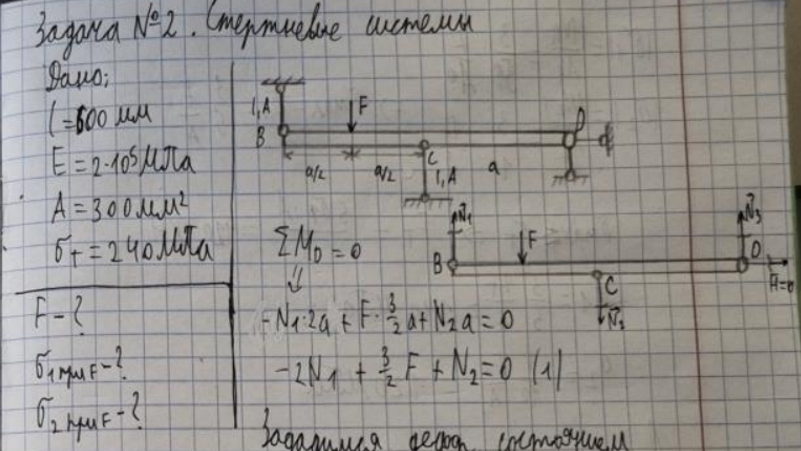 Задача №2. Стержневые системы
Дано:
l=600 мм
E=2·10⁵ МПа
A=300 мм²
σт=240 МПа
F-?
σ1 при F-?
σ2 при F-?
l,A
F
B
D
a/2
a/2
C
l,A
a
N⃗1
F
N⃗3
B
D
C
H=0
N⃗2
ΣM_D=0
⇓
-N1·2a+F·3/2a+N2a=0
-2N1+3/2F+N2=0 (1)
Зададимся дефор. состоянием